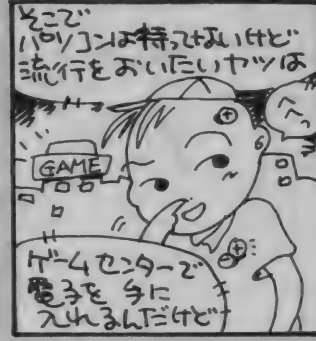 そこで
パソコンは持ってないけど
流行をおいたいヤツは
へっ
GAME
ゲームセンターで
電子を手に
入れるんだけど